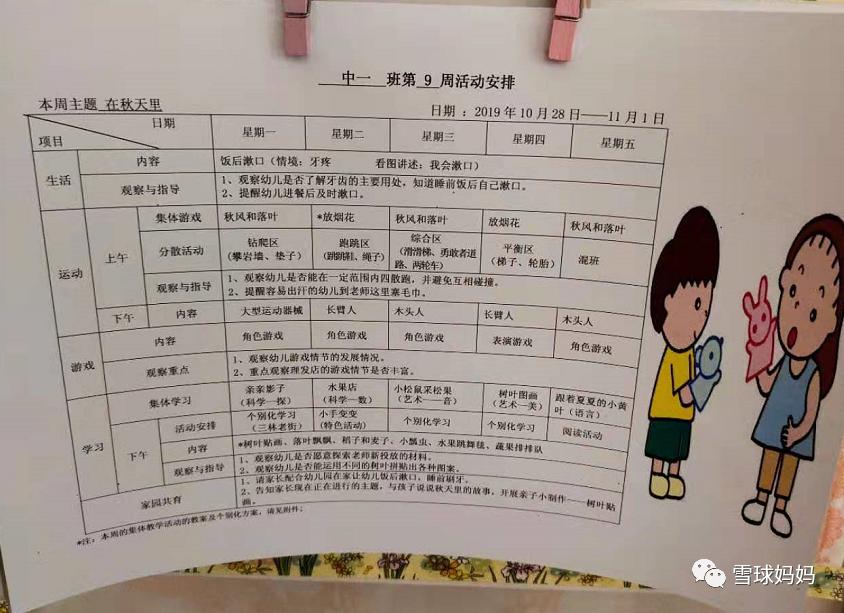 中一 班第 9 周活动安排
本周主题 在秋天里
日期：2019年10月28日——11月1日
日期 项目 星期一 星期二 星期三 星期四 星期五
生活 内容 饭后漱口（情境：牙疼 看图讲述：我会漱口）
观察与指导 1、观察幼儿是否了解牙齿的主要用处，知道睡前饭后自己漱口。
2、提醒幼儿进餐后及时漱口。
运动 上午 集体游戏 秋风和落叶 *放烟花 秋风和落叶 放烟花 秋风和落叶
分散活动 钻爬区（攀岩墙、垫子） 跑跳区（跳跳鞋、绳子） 综合区（滑滑梯、勇敢者道路、两轮车） 平衡区（梯子、轮胎） 混班
观察与指导 1、观察幼儿是否能在一定范围内四散跑，并避免互相碰撞。
2、提醒容易出汗的幼儿到老师这里塞毛巾。
下午 内容 大型运动器械 长臂人 木头人 长臂人 木头人
游戏 内容 角色游戏 角色游戏 角色游戏 表演游戏 角色游戏
观察重点 1、观察幼儿游戏情节的发展情况。
2、重点观察理发店的游戏情节是否丰富。
学习 集体学习 亲亲影子（科学—探） 水果店（科学—数） 小松鼠采松果（艺术——音） 树叶图画（艺术—美） 跟着夏夏的小黄叶（语言）
下午 活动安排 个别化学习（三林老街） 小手变变（特色活动） 个别化学习 个别化学习 阅读活动
内容 *树叶贴画、落叶飘飘、稻子和麦子、小瓢虫、水果跳舞毯、蔬果排排队
观察与指导 1、观察幼儿是否愿意探索老师新投放的材料。
2、观察幼儿是否能运用不同的树叶拼贴出各种图案。
家园共育 1、请家长配合幼儿园在家让幼儿饭后漱口，睡前刷牙。
2、告知家长现在正在进行的主题，与孩子说说秋天里的故事，开展亲子小制作——树叶贴画。
*注：本周的集体教学活动的教案及个别化方案，请见附件；
雪球妈妈